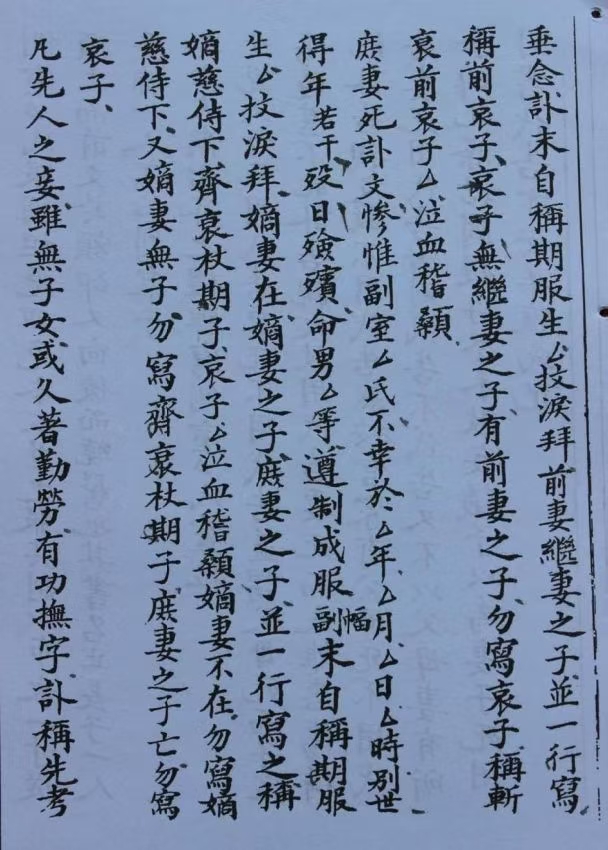 垂念訃末自稱期服生厶抆淚拜前妻繼妻之子並一行寫
稱前哀子、哀子、無繼妻之子、有前妻之子、勿寫哀子、稱斬
衰前哀子厶泣血稽顙、
庶妻死訃文、慘惟副室厶氏不幸於厶年、厶月、厶日、厶時別世、
得年若干、歿日殮殯、命男厶等遵制成服副幅末自稱期服
生厶抆淚拜、嫡妻在、嫡妻之子、庶妻之子、並一行寫之稱
嫡慈侍下、齊衰杖期子、哀子厶泣血稽顙嫡妻不在、勿寫嫡
慈侍下、又嫡妻無子、勿寫齊衰杖期子、庶妻之子亡、勿寫
哀子、
凡先人之妾、雖無子女、或久著勤勞、有功撫字、訃稱先考